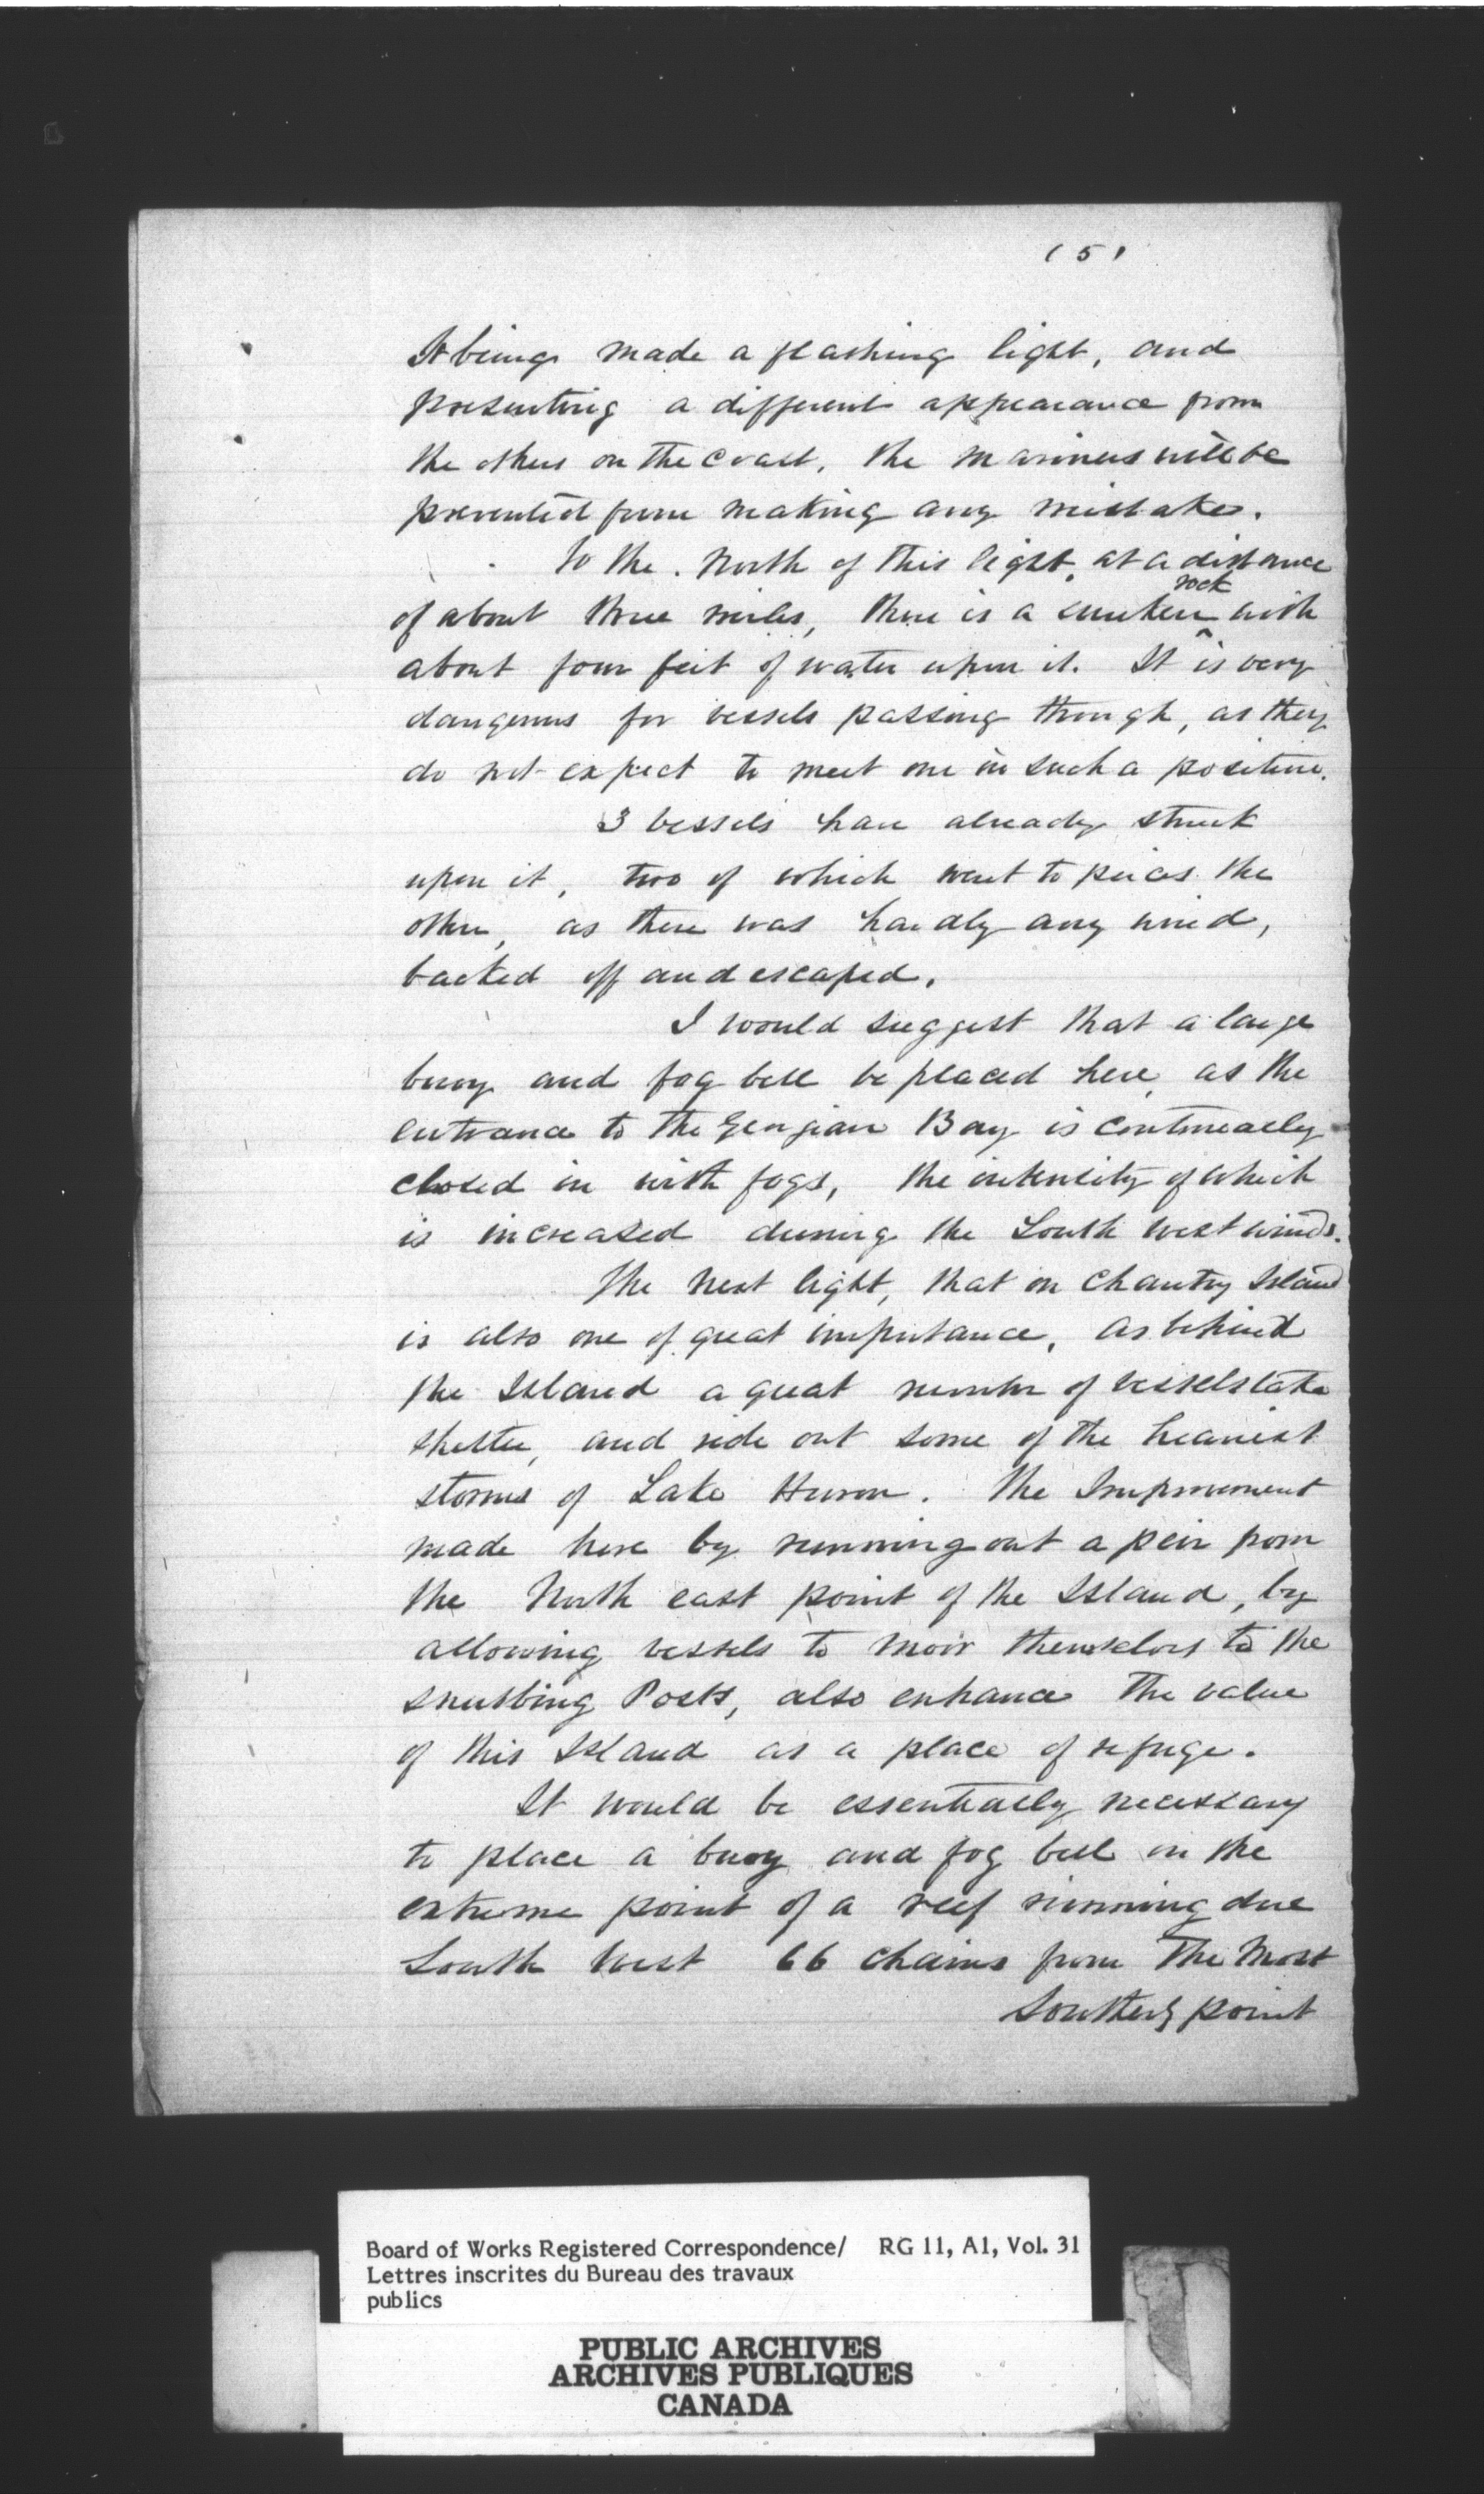 (5)
It being made a flashing light, and
presenting a different appearance from
the others on the coast, the mariners will be
prevented from making any mistakes.
To the North of this light, at a distance
of about three miles, there is a sunken ^rock with
about four feet of water upon it. It is very
dangerous for vessels passing through, as they
do not expect to meet one in such a position.
3 vessels have already struck
upon it, two of which went to peices the
other, as there was hardly any wind,
backed off and escaped.
I would suggest that a large
buoy and fog bell be placed here, as the
entrance to the Georgian Bay is continually
closed in with fogs, the intensity of which
is increased during the South west winds.
The next light, that on Chantry Island
is also one of great importance, as behind
the Island a great number of vessels take
shelter, and ride out some of the heaviest
storms of Lake Huron. The Improvement
made here by running out a peir from
the North east point of the Island, by
allowing vessels to moor themselves to the
snubbing Posts, also enhance the value
of this Island as a place of refuge.
It would be essentially necessary
to place a buoy and fog bell on the
extreme point of a reef running due
South West 66 chains from the most
Southerly point
Board of Works Registered Correspondence/ RG 11, A1, Vol. 31
Lettres inscrites du Bureau des travaux
publics
PUBLIC ARCHIVES
ARCHIVES PUBLIQUES
CANADA